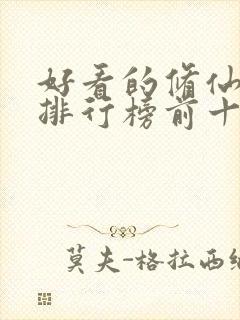 好看的修仙
排行榜前十
莫夫-格拉西